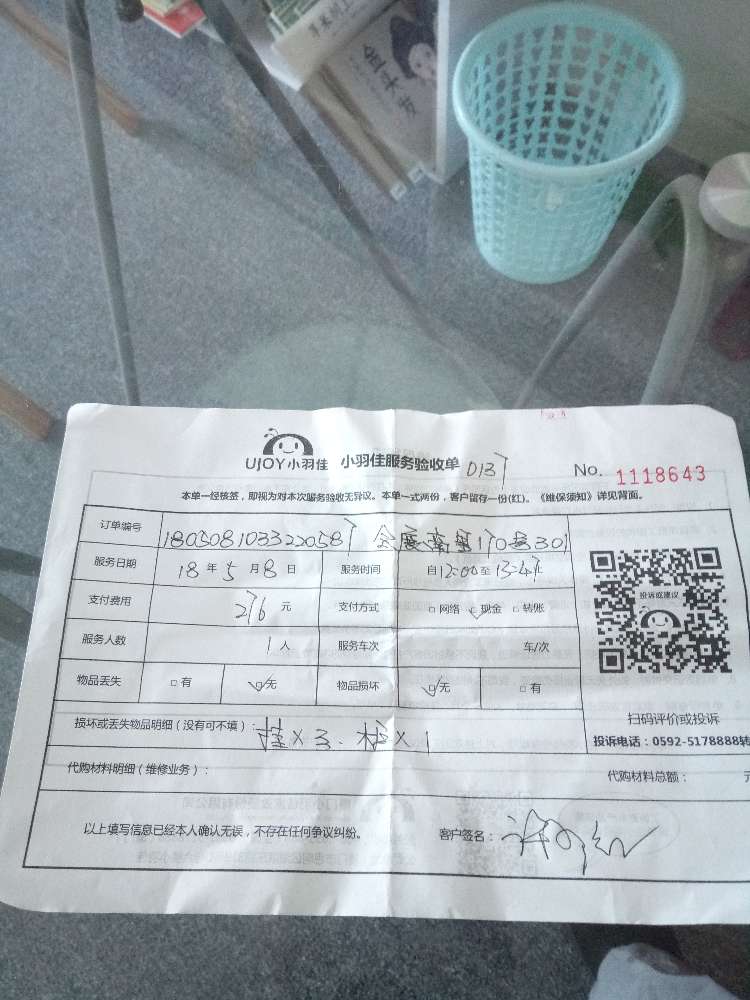 金
UJOY小羽佳 小羽佳服务验收单 No. 1118643
本单一经核签，即视为对本次服务验收无异议。本单一式两份，客户留存一份(红)。《维保须知》详见背面。
订单编号 180508103322058 170号301
服务日期 18 年 5 月 8 日 服务时间 自12:00至
支付费用 276 元 支付方式 □网络 ☑现金 □转账
服务人数 1 人 服务车次 车/次
物品丢失 □有 ☑无 物品损坏 ☑无 □有
投诉或建议
扫码评价或投诉
投诉电话：0592-5178888转
损坏或丢失物品明细（没有可不填）：挂×3、柜×1
代购材料明细（维修业务）： 代购材料总额： 元
以上填写信息已经本人确认无误，不存在任何争议纠纷。 客户签名：